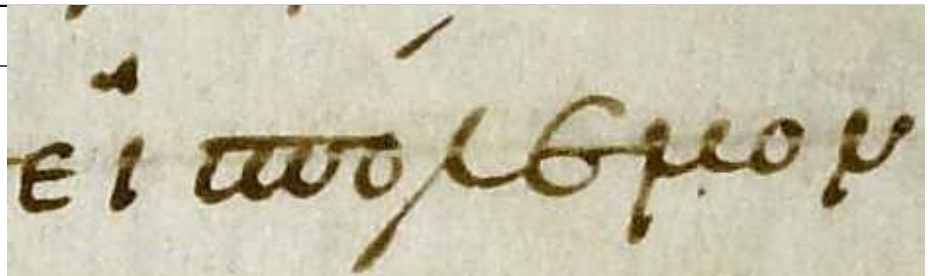 εἰ πόλεμον